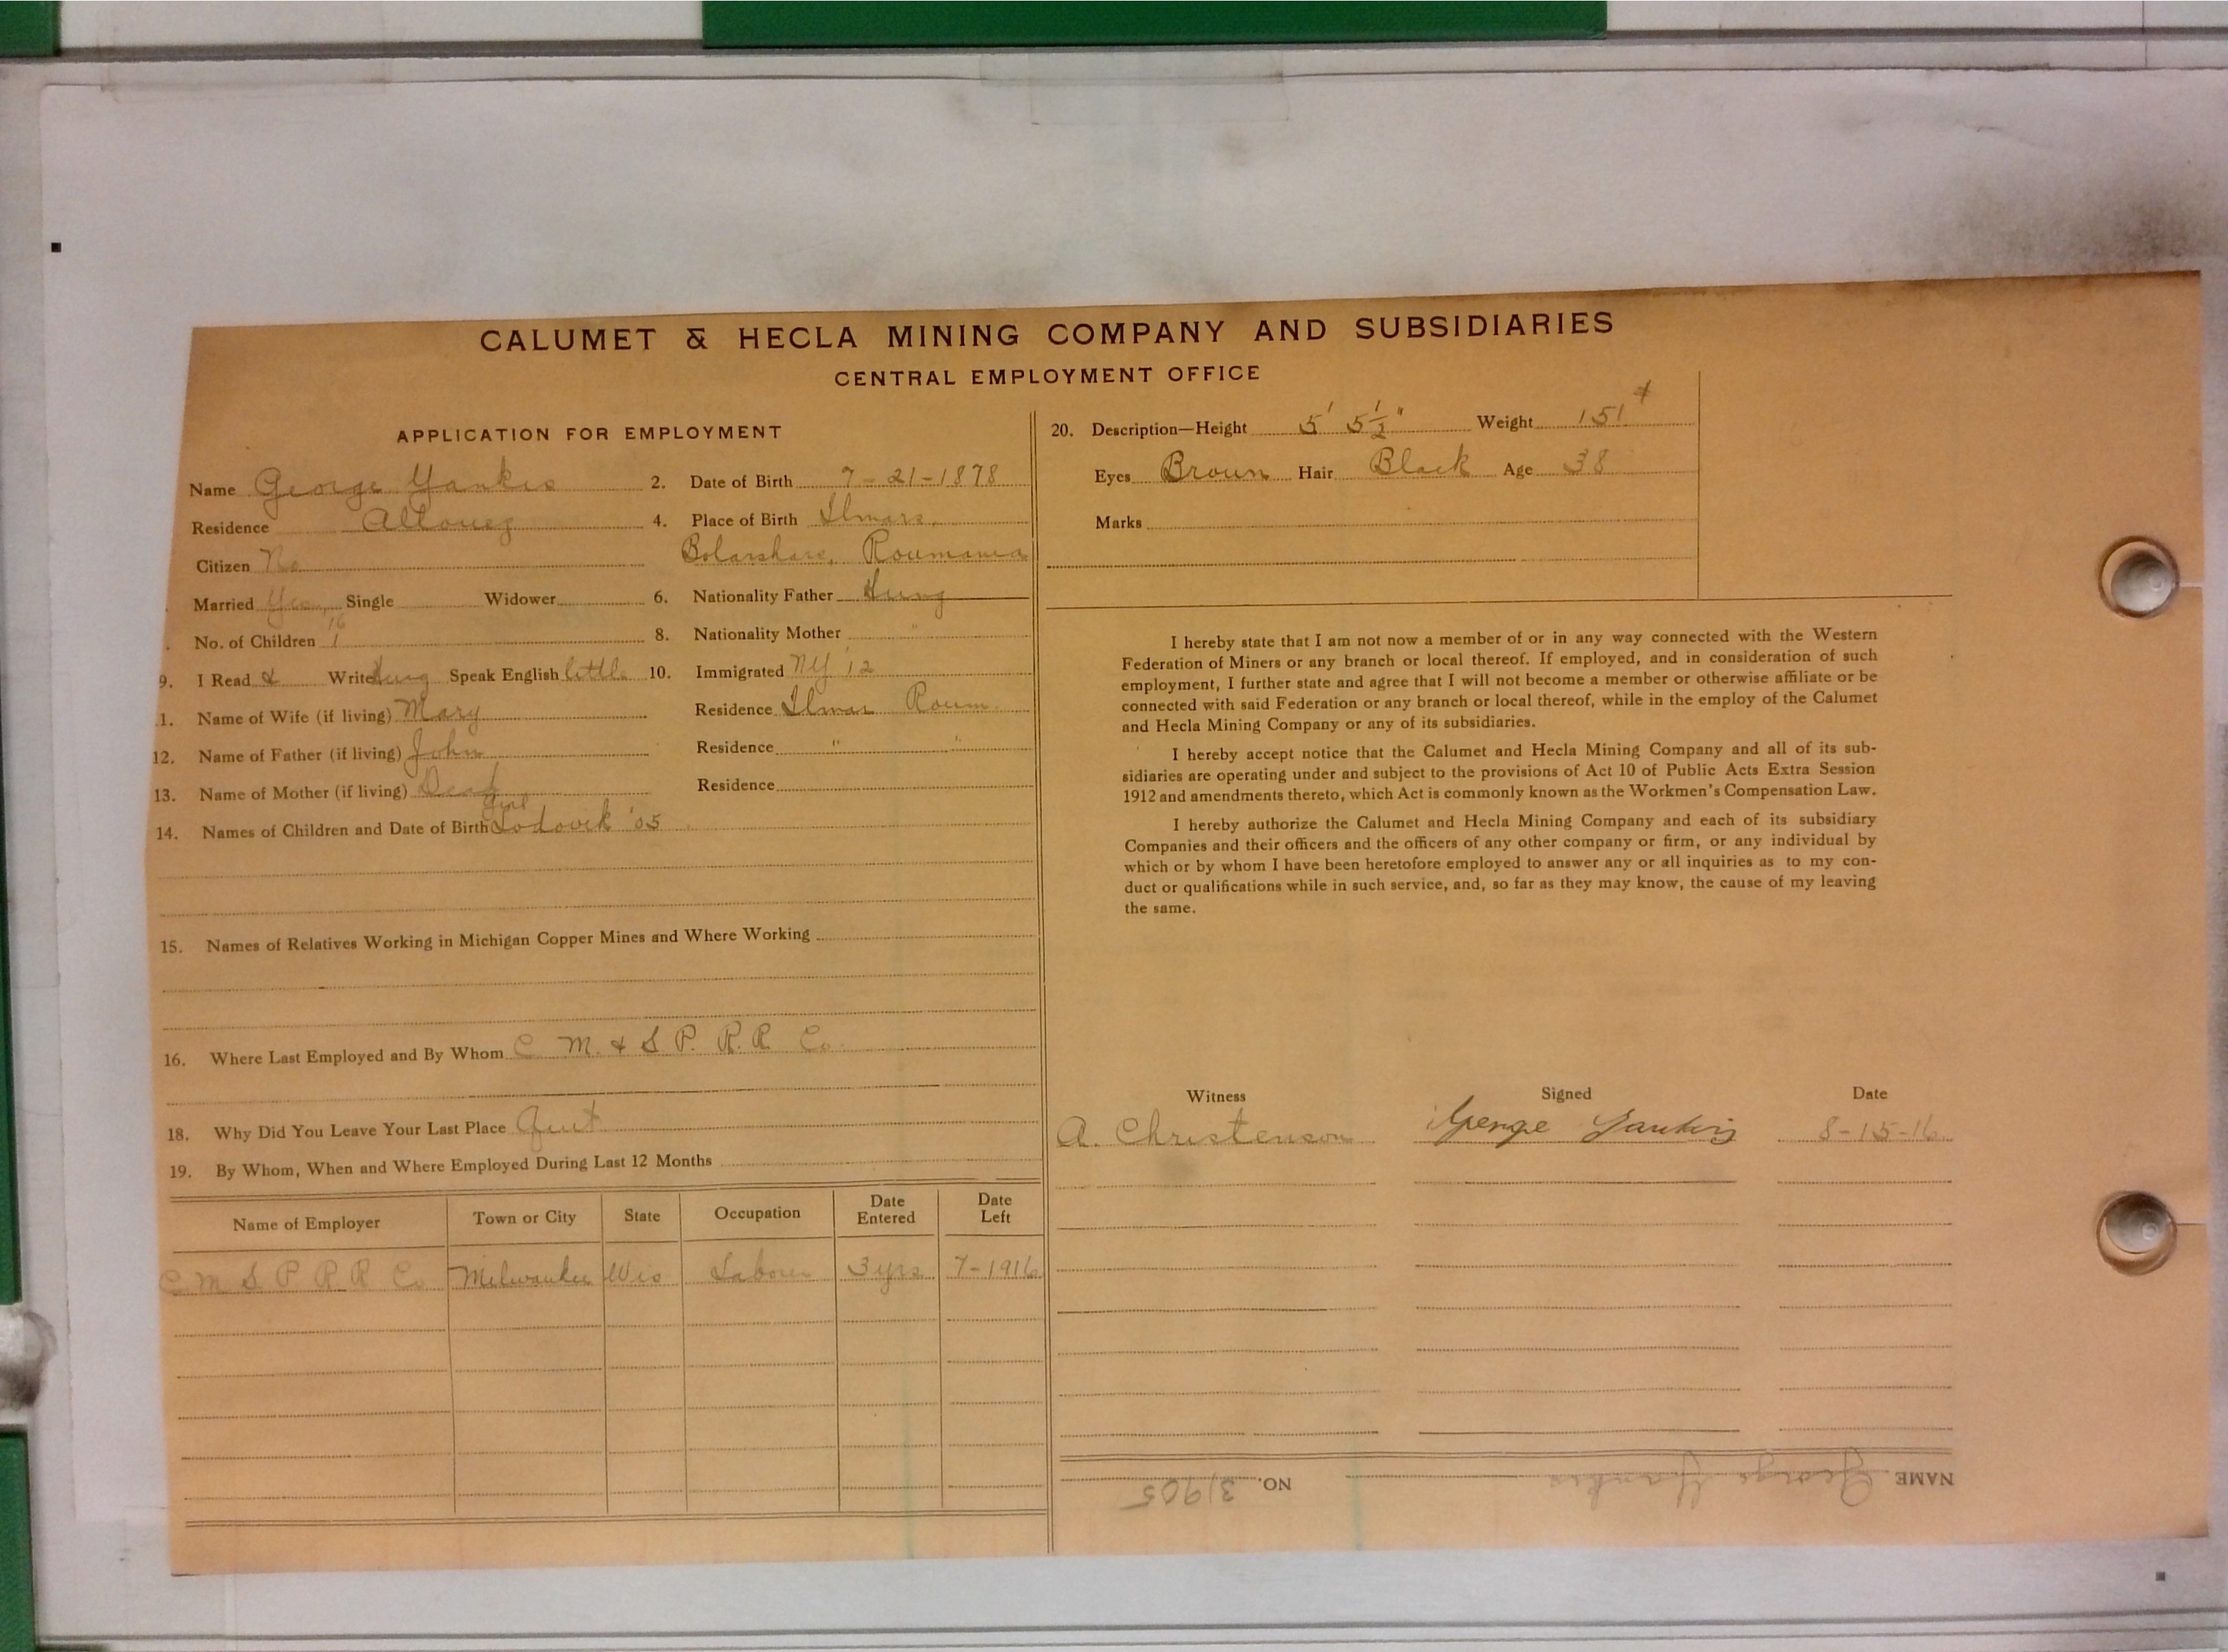 CALUMET & HECLA MINING COMPANY AND SUBSIDIARIES
CENTRAL EMPLOYMENT OFFICE
APPLICATION FOR EMPLOYMENT
Name George Yankis 2. Date of Birth 7-21-1878
Residence Allouez 4. Place of Birth Ilmars,
Bolarshare, Roumania
Citizen No
Married Yes, Single Widower 6. Nationality Father Hung
16
No. of Children 1 8. Nationality Mother "
9. I Read & Write Hung Speak English little 10. Immigrated NY '12
1. Name of Wife (if living) Mary Residence Ilmar Roum.
12. Name of Father (if living) John Residence " "
13. Name of Mother (if living) Dead Residence
girl
14. Names of Children and Date of Birth Lodovik '05
15. Names of Relatives Working in Michigan Copper Mines and Where Working
16. Where Last Employed and By Whom C M. & S P. R. R Co.
18. Why Did You Leave Your Last Place Quit
19. By Whom, When and Where Employed During Last 12 Months
Name of Employer Town or City State Occupation Date Entered Date Left
C. M S P R R Co Milwaukee Wis Laborer 3 yrs 7-1916
20. Description—Height 5' 5½" Weight 151#
Eyes Brown Hair Black Age 38
Marks
I hereby state that I am not now a member of or in any way connected with the Western
Federation of Miners or any branch or local thereof. If employed, and in consideration of such
employment, I further state and agree that I will not become a member or otherwise affiliate or be
connected with said Federation or any branch or local thereof, while in the employ of the Calumet
and Hecla Mining Company or any of its subsidiaries.
I hereby accept notice that the Calumet and Hecla Mining Company and all of its sub-
sidiaries are operating under and subject to the provisions of Act 10 of Public Acts Extra Session
1912 and amendments thereto, which Act is commonly known as the Workmen's Compensation Law.
I hereby authorize the Calumet and Hecla Mining Company and each of its subsidiary
Companies and their officers and the officers of any other company or firm, or any individual by
which or by whom I have been heretofore employed to answer any or all inquiries as to my con-
duct or qualifications while in such service, and, so far as they may know, the cause of my leaving
the same.
Witness Signed Date
A. Christenson George Yankis 8-15-16
NAME George Yankis NO. 31905